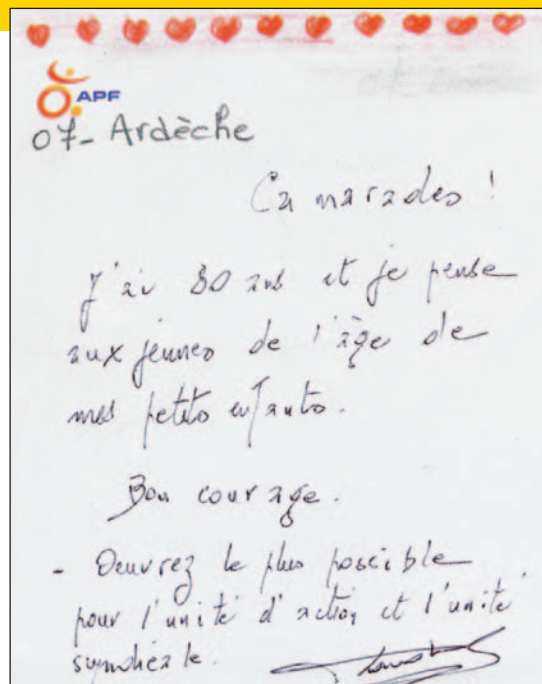 APF
07- Ardèche
Camarades !
J'ai 80 ans et je pense
aux jeunes de l'âge de
mes petits enfants.
Bon courage.
- Oeuvrez le plus poscible
pour l'unité d'action et l'unité
syndicale.